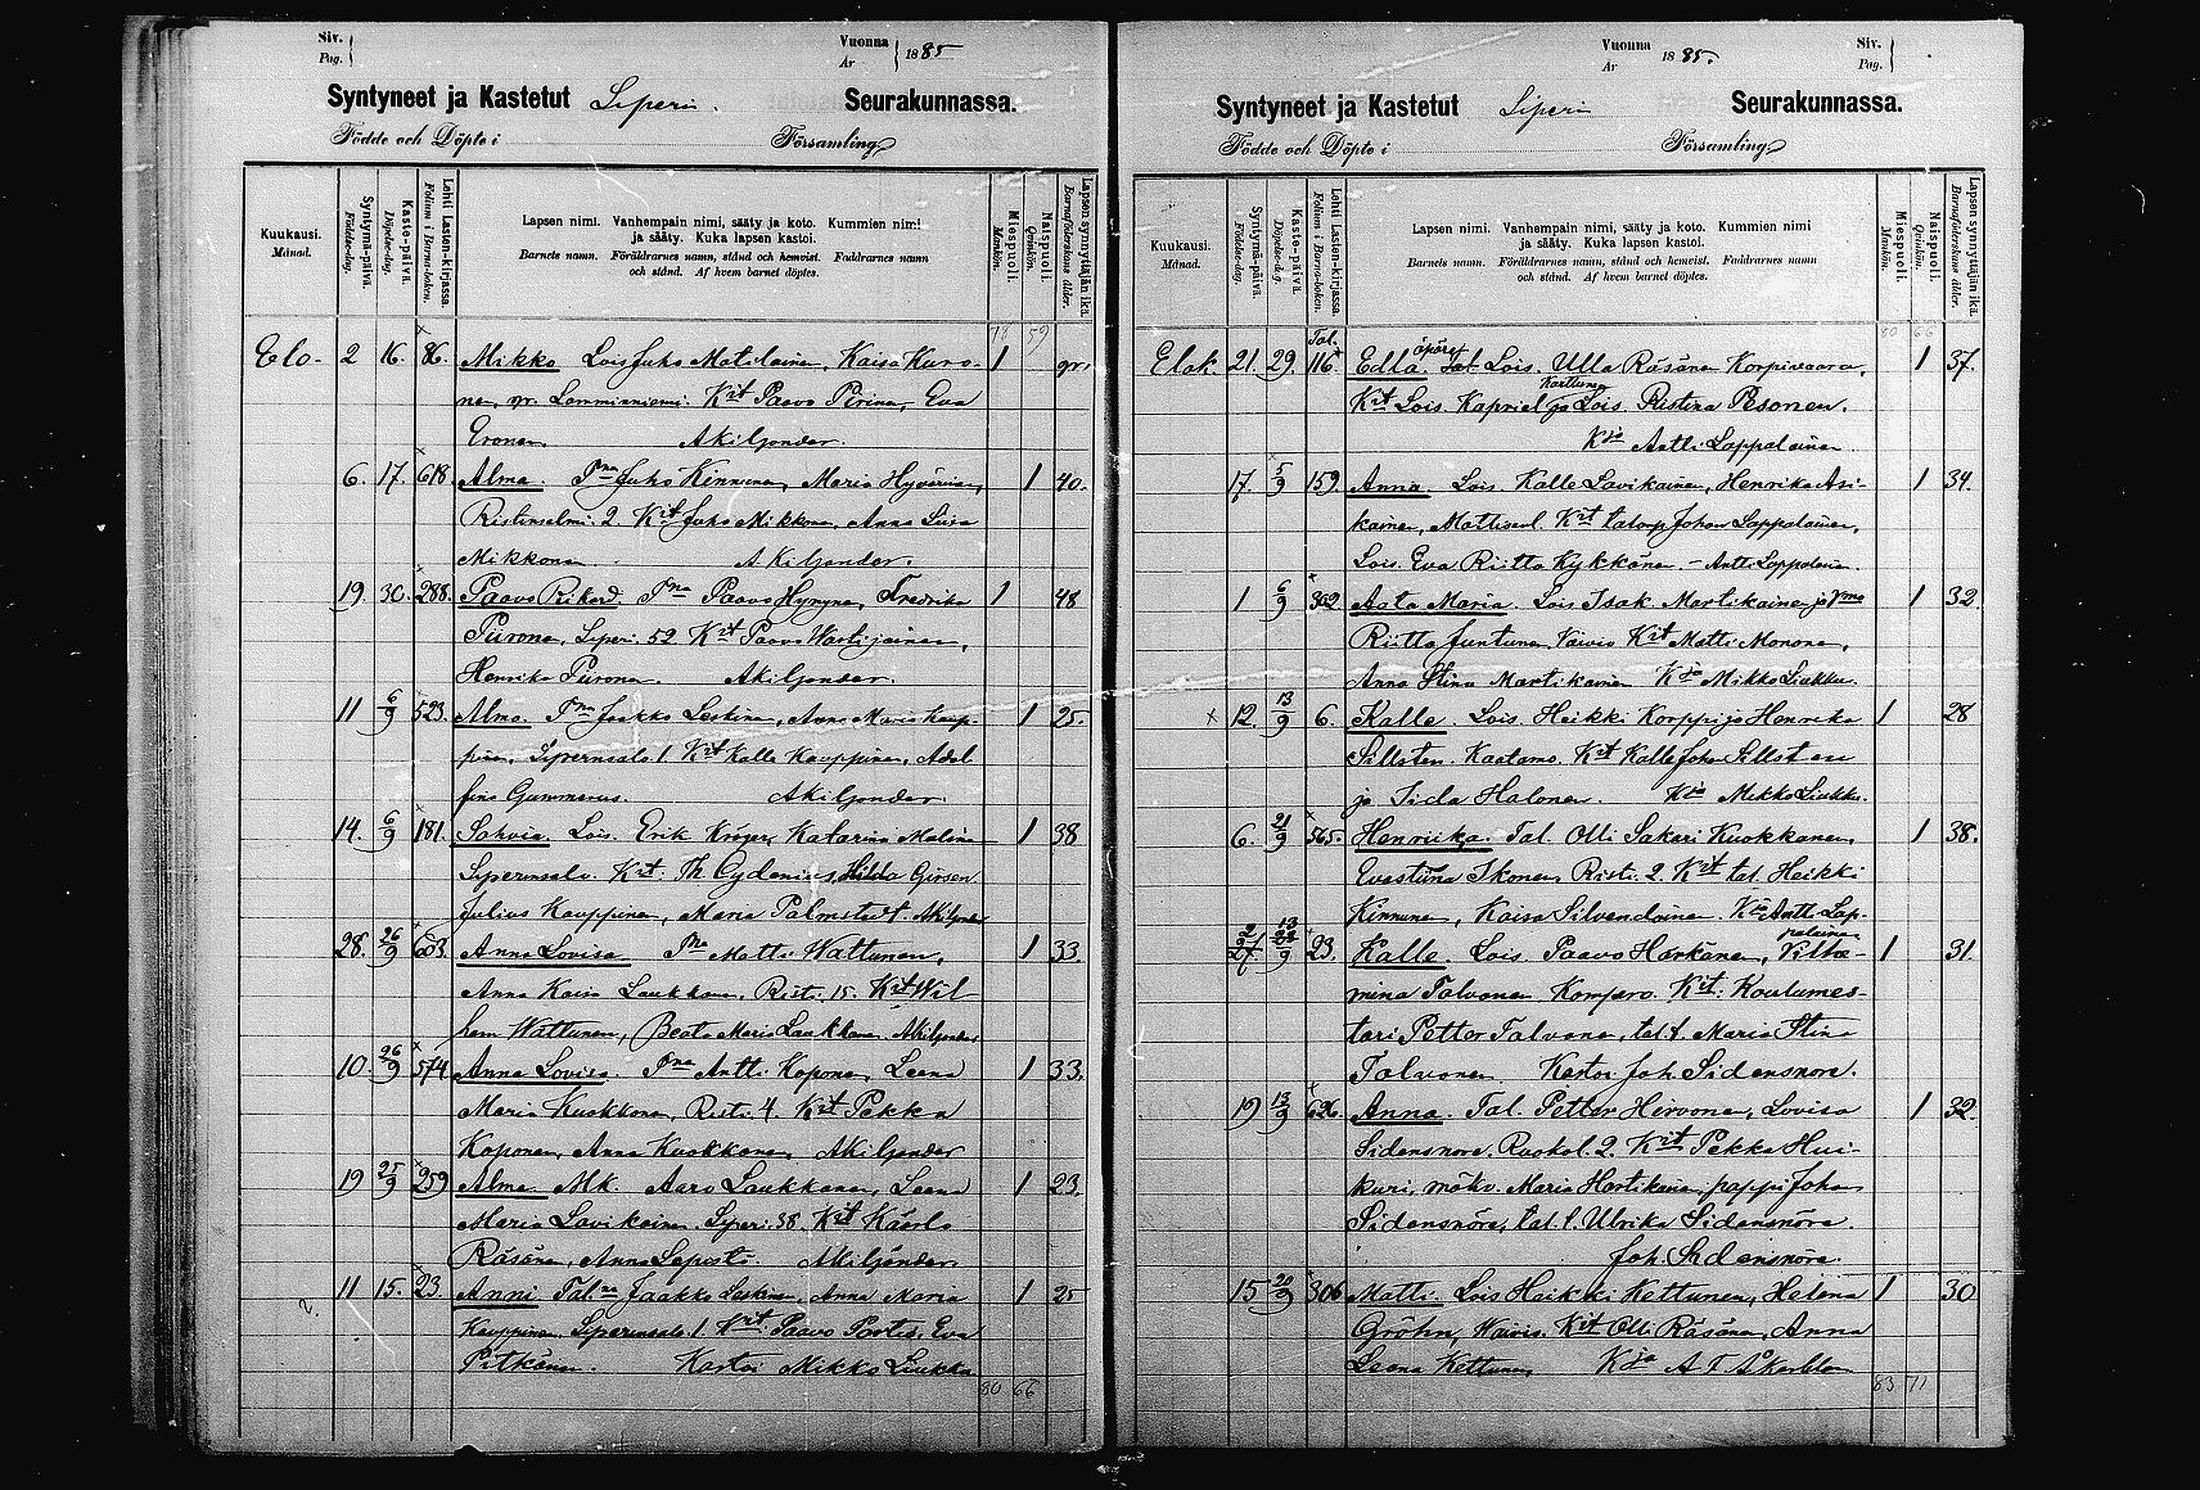 Siv.
Pag.
Vuonna
År
1885
Syntyneet ja Kastetut Liperi. Seurakunnassa.
Födde och Döpte i Församling
Kuukausi.
Månad.
Syntymä-päivä.
Födelse-dag.
Kaste-päivä.
Döpelse-dag.
Lehti Lasten-kirjassa.
Folium i Barna-boken.
Lapsen nimi. Vanhempain nimi, sääty ja koto. Kummien nimi
ja sääty. Kuka lapsen kastoi.
Barnets namn. Föräldrarnes namn, stånd och hemvist. Faddrarnes namn
och stånd. Af hvem barnet döptes.
Miespuoli.
Mankön.
Naispuoli.
Qvinkön.
Lapsen synnyttäjän ikä.
Barnaföderskans ålder.
78 59
Elo- 2 16. 86. Mikko Lois Juho Matilainen, Kaisa Kuro- 1 gr.
nen, gr. Lamminniemi. Krit Paavo Pirinen, Eva
Eronen. AKiljander.
6. 17. 618. Alma. Pna Juho Kinnunen, Maria Hyvärinen, 1 40.
Ristinselmi. 2. Krit Juho Mikkonen, Anna Liisa
Mikkonen. A Kiljander.
19. 30. 288. Paavo Rikard. Pna Paavo Hyrynen, Fredrika 1 48
Piironen, Liperi. 52 Krit Paavo Wartijainen,
Henrika Piironen. AKiljander.
11 6/9 523. Alma. Pna Jaakko Leskinen, Anna Maria Kaup- 1 25.
pinen, Liperinsalo 1. Krit Kalle Kauppinen, Adol
fina Gummerus. AKiljander.
14. 6/9 181. Sahvia. Lois. Erik Kröger, Katarina Malinen 1 38
Liperinsalo. Krit: Th. Cydenius, Hilda Girsen
Julius Kauppinen, Maria Palmstedt. AKiljander
28. 26/9 603. Anna Lovisa Pna Matti Wattunen, 1 33.
Anna Kaisa Laukkanen, Risti. 15. Krit Wil
hem Wattunen, Beata Maria Laukkanen. AKiljander
10. 26/9 574 Anna Lovisa. Pna Antti Koponen, Leena 1 33.
Maria Kuokkanen, Risti. 4. Krit Pekka
Koponen, Anna Kuokkanen, AKiljander
19 25/9 259 Alma Mk. Aaro Laukkanen, Leena 1 23.
Maria Lavikainen. Liperi. 38. Krit Kaarlo
Räsänen, Anna Lepistö. AKiljander.
11 15. 23. Anni Tal. Jaakko Leskinen, Anna Maria 1 25
Kauppinen. Liperinsalo. 1. Krit: Paavo Partis. Eva
Pitkänen. Kastoi Mikko Liukku
80 66
Vuonna
År
1885.
Siv.
Pag.
Syntyneet ja Kastetut Liperi Seurakunnassa.
Födde och Döpte i Församling
Kuukausi.
Månad.
Syntymä-päivä.
Födelse-dag.
Kaste-päivä.
Döpelse-dag.
Lehti Lasten-kirjassa.
Folium i Barna-boken.
Lapsen nimi. Vanhempain nimi, sääty ja koto. Kummien nimi
ja sääty. Kuka lapsen kastoi.
Barnets namn. Föräldrarnes namn, stånd och hemvist. Faddrarnes namn
och stånd. Af hvem barnet döptes.
Miespuoli.
Mankön.
Naispuoli.
Qvinkön.
Lapsen synnyttäjän ikä.
Barnaföderskans ålder.
80 66
Elok. 21. 29. Tal. 116 Edla. äpärä Lois. Ulla Räsänen Korpivaara, 1 37.
Krit Lois. Kapriel Karttunen ja Lois. Ristina Pesonen.
Kja Antti Lappalainen
17. 5/9 159. Anna. Lois. Kalle Lavikainen, Henrika Asi- 1 34.
kainen, Mattisenl. Krit talonp Johan Lappalainen,
Lois. Eva Riitta Kykkänen. - Antti Lappalainen.
1 6/9 302 Aata Maria. Lois Isak Martikainen ja Vmo 1 32
Riitta Juntunen. Vaivio Krit Matti Mononen,
Anna Stina Martikainen Kja Mikko Liukku.
x 12. 13/9 6. Kalle. Lois. Heikki Korppi ja Henrika 1 28
Sillsten. Kaatamo. Krit Kalle Johan Sillsten
ja Iida Halonen. Kja Mikko Liukku.
6. 21/9 565. Henriika. Tal. Olli Sakari Kuokkanen, 1 38.
Evastiina Ikonen, Risti. 2. Krit tal. Heikki
Kinnunen, Kaisa Silvendoinen. Kja Antti Lap-
palainen
27 13/9 23. Kalle. Lois. Paavo Härkänen, Vilhe- 1 31
mina Talvonen Komparo. Krit: Koulumes-
tari Petter Talvonen, tal.t. Maria Stina
Talvonen. Kastoi Joh. Sidensnöre.
19 13/9 626. Anna. Tal. Petter Hirvonen, Lovisa 1 32
Sidensnöre. Ruokol. 2. Krit Pekka Hui-
kuri, mökv. Maria Hartikainen, pappi Johan
Sidensnöre, tal. t. Ulrika Sidensnöre.
Joh. Sidensnöre.
15 20/9 306 Matti. Lois Heikki Kettunen, Helena 1 30
Gröhn, Waivio. Krit Olli Räsänen, Anna
Leena Kettunen, Kja A F Åkerblom
83 71